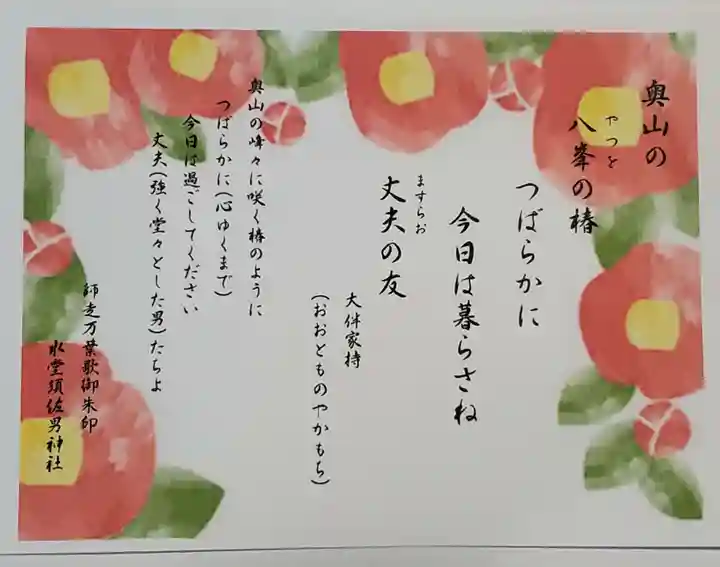 奥山の
八峯の椿
やつを
つばらかに
今日は暮らさね
丈夫の友
ますらお
大伴家持
(おおとものやかもち)
奥山の峰々に咲く椿のように
つばらかに(心ゆくまで)
今日は過ごしてください
丈夫(強く堂々とした男)たちよ
師走万葉歌御朱印
水堂須佐男神社